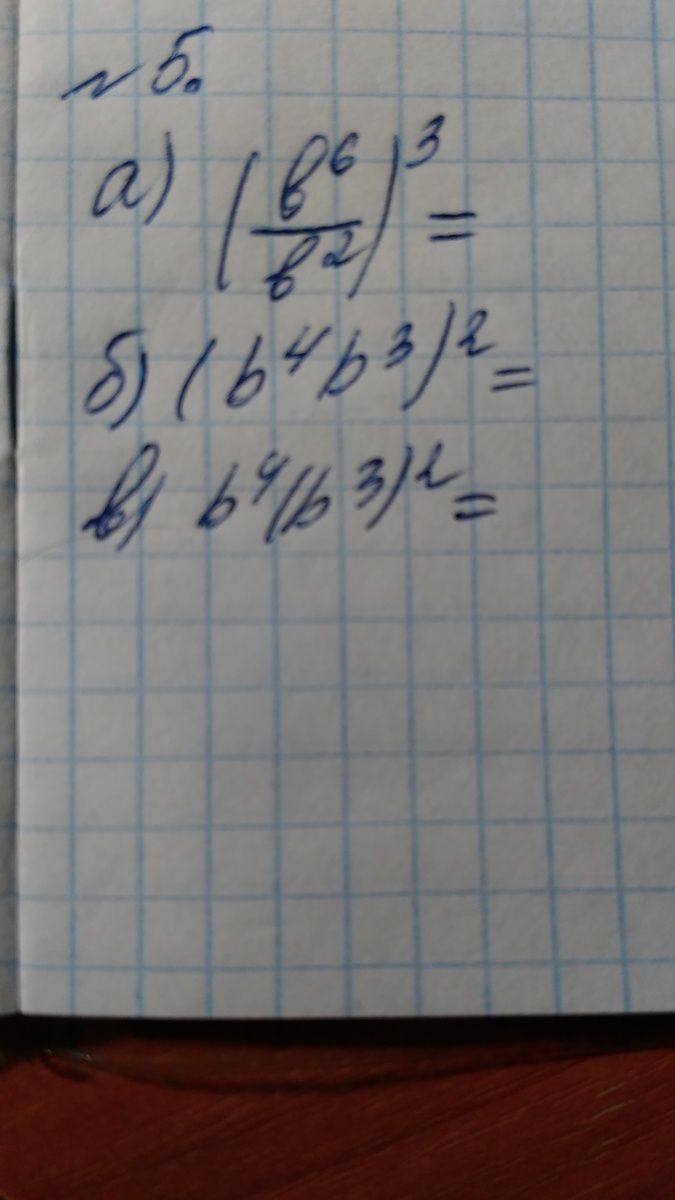 №5.
а) (b⁶/b²)³ =
б) (b⁴b³)² =
в) b⁴(b³)² =